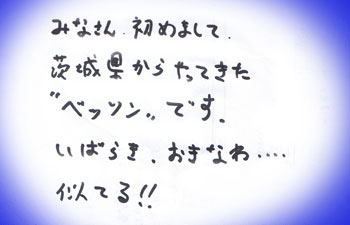 みなさん、初めまして、
茨城県からやってきた
"ベッツン"です。
いばらき、おきなわ‥‥
似てる!!